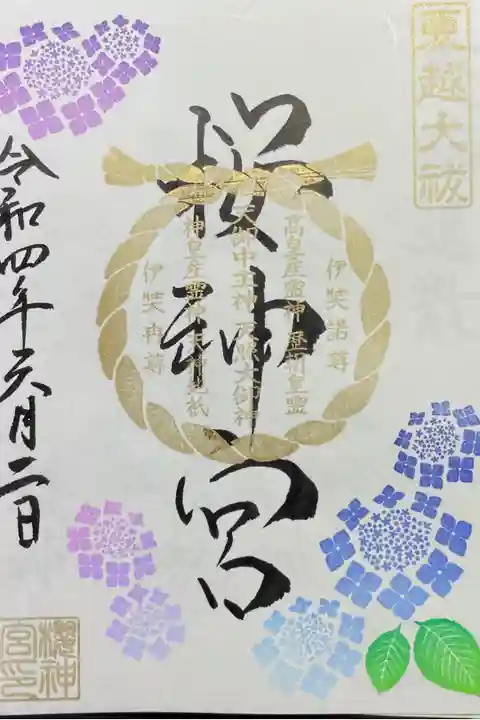 夏越大祓
桜神宮
伊奘諾尊
高皇産靈神 歴朝皇靈
天御中主神 天照大御神
神皇産靈神 天神地祇
伊奘冉尊
令和四年六月二日
櫻神
宮印